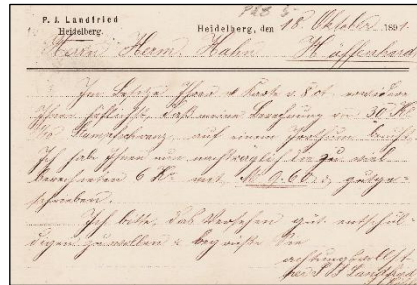 P. J. Landfried
Heidelberg.
Heidelberg, den 18. Oktober 1891.
Herrn Herm. Hahn
Im Besitze Ihrer Karte v. 8. ct. erwidere
Ihnen höflichst, daß meine Berechnung von 36 K
auf einem Irrthum beruht.
Ich habe Ihnen nun nachträglich die zu viel
berechneten 6 K. mit M. 9.60 gutge-
schrieben.
Ich bitte, das Versehen gut. entschul-
digen zu wollen & begrüße Sie
achtungsvollst
P. J. Landfried